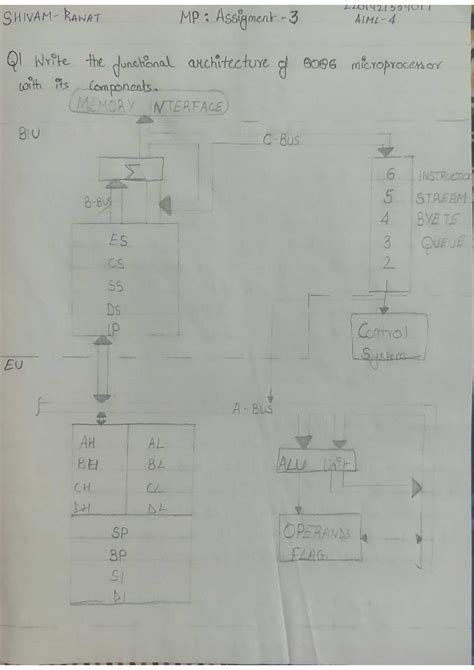 SHIVAM-RAWAT
MP: Assigment-3
AIML-4
Q1 Write the functional architecture of 8086 microprocessor
with its components.
MEMORY INTERFACE
BIU
C-BUS
Σ
B-BUS
6 INSTRUCTIO
5 STREAM
4 BYETE
3 QUEUE
2
1
ES
CS
SS
DS
IP
Control
System
EU
A-BUS
AH AL
BH BL
CH CL
DH DL
SP
BP
SI
DI
ALU Unit
OPERANDS
FLAG